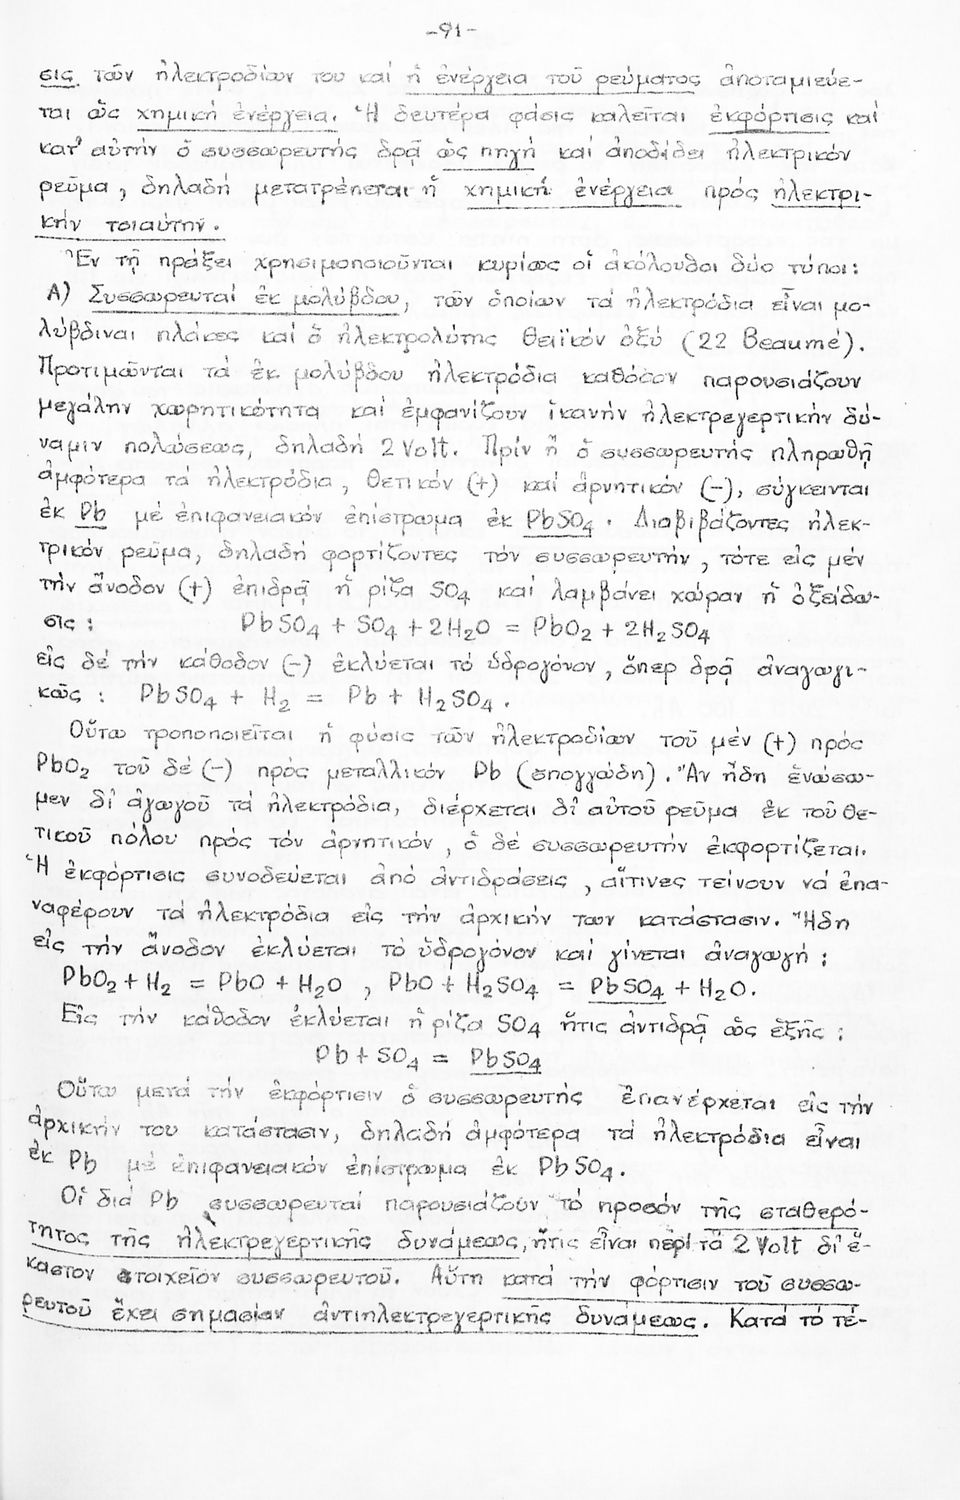 -91-
σις τῶν ἠλεκτροδίων του καί ἡ ἐνέργεια τοῦ ρεύματος ἀποταμιεύε-
ται ὡς χημική ἐνέργεια. Ἡ δευτέρα φάσις καλεῖται ἐκφόρτισις καί
κατ' αὐτήν ὁ συσσωρευτής δρᾷ ὡς πηγή καί ἀποδίδει ἠλεκτρικόν
ρεῦμα, δηλαδή μετατρέπεται ἡ χημική ἐνέργεια πρός ἠλεκτρι-
κήν τοιαύτην.
Ἐν τῇ πράξει χρησιμοποιοῦνται κυρίως οἱ ἀκόλουθοι δύο τύποι:
Α) Συσσωρευταί ἐκ μολύβδου, τῶν ὁποίων τά ἠλεκτρόδια εἶναι μο-
λύβδιναι πλάκες καί ὁ ἠλεκτρολύτης θειϊκόν ὀξύ (22 Beaumé).
Προτιμῶνται τά ἐκ μολύβδου ἠλεκτρόδια καθόσον παρουσιάζουν
μεγάλην χωρητικότητα καί ἐμφανίζουν ἱκανήν ἠλεκτρεγερτικήν δύ-
ναμιν πολώσεως, δηλαδή 2 Volt. Πρίν ἤ ὁ συσσωρευτής πληρωθῇ
ἀμφότερα τά ἠλεκτρόδια, θετικόν (+) καί ἀρνητικόν (-), σύγκεινται
ἐκ Pb μέ ἐπιφανειακόν ἐπίστρωμα ἐκ PbSO4. Διαβιβάζοντες ἠλεκ-
τρικόν ρεῦμα, δηλαδή φορτίζοντες τόν συσσωρευτήν, τότε εἰς μέν
τήν ἄνοδον (+) ἐπιδρᾷ ἡ ρίζα SO4 καί λαμβάνει χώραν ἡ ὀξείδω-
σις: PbSO4 + SO4 + 2H2O = PbO2 + 2H2SO4
εἰς δέ τήν κάθοδον (-) ἐκλύεται τό ὑδρογόνον, ὅπερ δρᾷ ἀναγωγι-
κῶς: PbSO4 + H2 = Pb + H2SO4.
Οὕτω τροποποιεῖται ἡ φύσις τῶν ἠλεκτροδίων τοῦ μέν (+) πρός
PbO2 τοῦ δέ (-) πρός μεταλλικόν Pb (σπογγώδη). Ἄν ἤδη ἑνώσω-
μεν δι' ἀγωγοῦ τά ἠλεκτρόδια, διέρχεται δι' αὐτοῦ ρεῦμα ἐκ τοῦ θε-
τικοῦ πόλου πρός τόν ἀρνητικόν, ὁ δέ συσσωρευτήν ἐκφορτίζεται.
Ἡ ἐκφόρτισις συνοδεύεται ἀπό ἀντιδράσεις, αἵτινες τείνουν νά ἐπα-
ναφέρουν τά ἠλεκτρόδια εἰς τήν ἀρχικήν των κατάστασιν. Ἤδη
εἰς τήν ἄνοδον ἐκλύεται τό ὑδρογόνον καί γίνεται ἀναγωγή:
PbO2 + H2 = PbO + H2O, PbO + H2SO4 = PbSO4 + H2O.
Εἰς τήν κάθοδον ἐκλύεται ἡ ρίζα SO4 ἥτις ἀντιδρᾷ ὡς ἑξῆς:
Pb + SO4 = PbSO4
Οὕτω μετά τήν ἐκφόρτισιν ὁ συσσωρευτής ἐπανέρχεται εἰς τήν
ἀρχικήν του κατάστασιν, δηλαδή ἀμφότερα τά ἠλεκτρόδια εἶναι
ἐκ Pb μέ ἐπιφανειακόν ἐπίστρωμα ἐκ PbSO4.
Οἱ διά Pb συσσωρευταί παρουσιάζουν τό προσόν τῆς σταθερό-
τητος τῆς ἠλεκτρεγερτικῆς δυνάμεως, ἥτις εἶναι περί τά 2 Volt δι' ἕ-
καστον στοιχεῖον συσσωρευτοῦ. Αὕτη κατά τήν φόρτισιν τοῦ συσσω-
ρευτοῦ ἔχει σημασίαν ἀντιηλεκτρεγερτικῆς δυνάμεως. Κατά τό τέ-